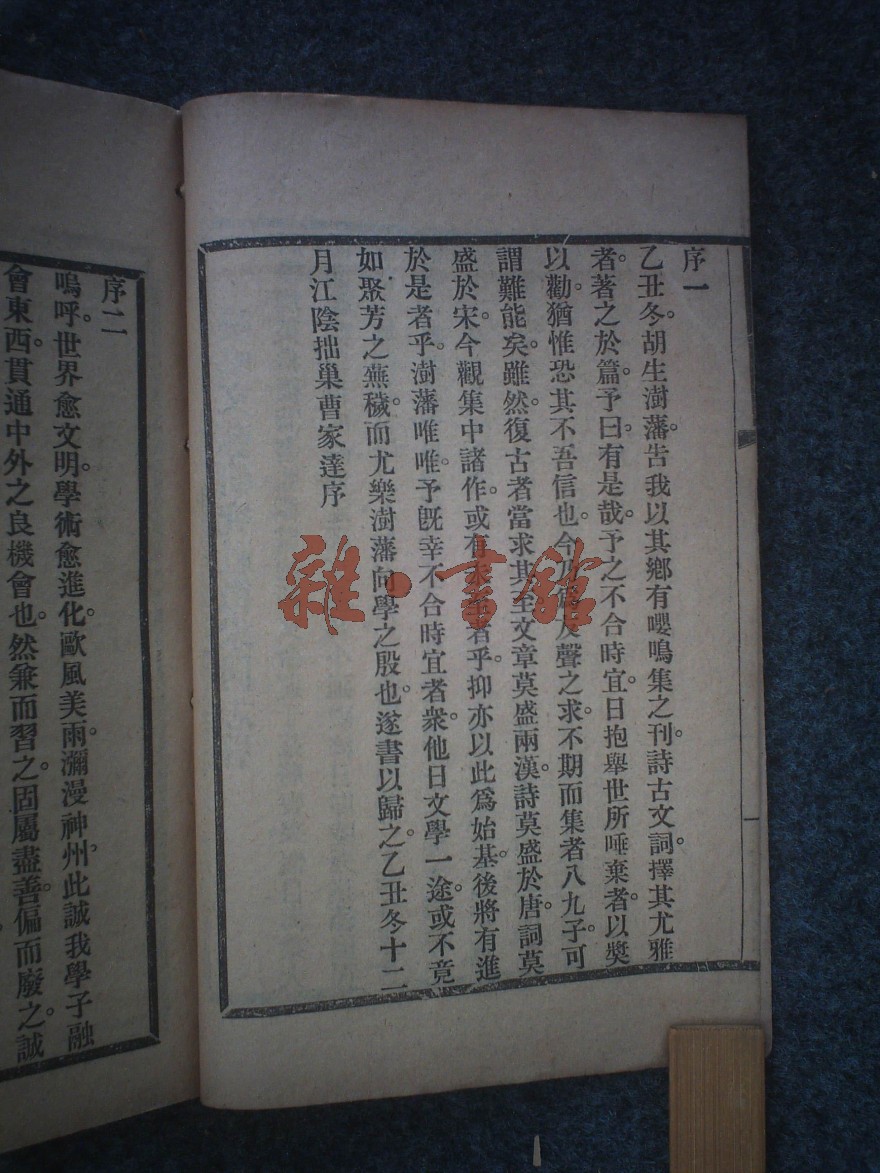 序一
乙丑冬。胡生澍藩告我以其鄉有嚶鳴集之刊。詩古文詞。擇其尤雅
者。著之於篇。予曰。有是哉。予之不合時宜。日抱舉世所唾棄者。以獎
以勸。猶惟恐其不吾信也。今乃爲友聲之求。不期而集者八九子。可
謂難能矣。雖然。復古者當求其至。文章莫盛兩漢。詩莫盛於唐。詞莫
盛於宋。今觀集中諸作。或有未至者乎。抑亦以此爲始基。後將有進
於是者乎。澍藩唯唯。予旣幸不合時宜者衆。他日文學一途。或不竟
如聚芳之蕪穢。而尤樂澍藩向學之殷也。遂書以歸之。乙丑冬十二
月江陰拙巢曹家達序
一
序二
嗚呼。世界愈文明。學術愈進化。歐風美雨。瀰漫神州。此誠我學子融
會東西。貫通中外之良機會也。然兼而習之。固屬盡善。偏而廢之。誠
雜·書館